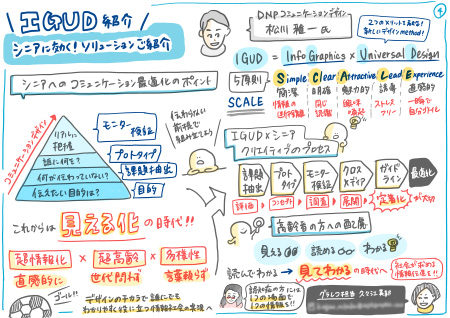 IGUD 紹介
シニアに効く!ソリューションご紹介
DNPコミュニケーションデザイン
松川 雅一 氏
2つのメリットを与える!
新しいデザインmethod!
IGUD = InfoGraphics × Universal Design
5原則
Simple Clear Attractive Lead Experience
簡潔 明確 魅力的 誘導 直感的
SCALE
情報の
ストレス
フリー
一瞬で
シニアへのコミュニケーション最適化のポイント
コミュニケーションデザイン
リアルに
把握
誰に何を?
何が伝わっていない?
伝えたい目的は?
モニター
検証
プロトタイプ
課題抽出
目的
伝わらない
前提で
組み立てよう
IGUD×シニア
クリエイティブのプロセス
課題
抽出
プロト
タイプ
モニター
検証
クロス
メディア
ガイド
ライン
最適化
評価
コンセプト
調査
展開
定着化
が大切
これからは 見える化 の時代!!
超情報化 × 超高齢化 × 多様性
直感的に 世代問わず 言葉頼らず
ゴール!!
デザインのチカラで誰にでも
わかりやすく役に立つ情報社会の実現へ
高齢者の方への配慮
見える 読める わかる
読んでわかる → 見てわかる の時代へ
社会が求める
情報伝達を!!
高齢者の方には
1つの場面で
1つの情報を!!
グラレコ担当